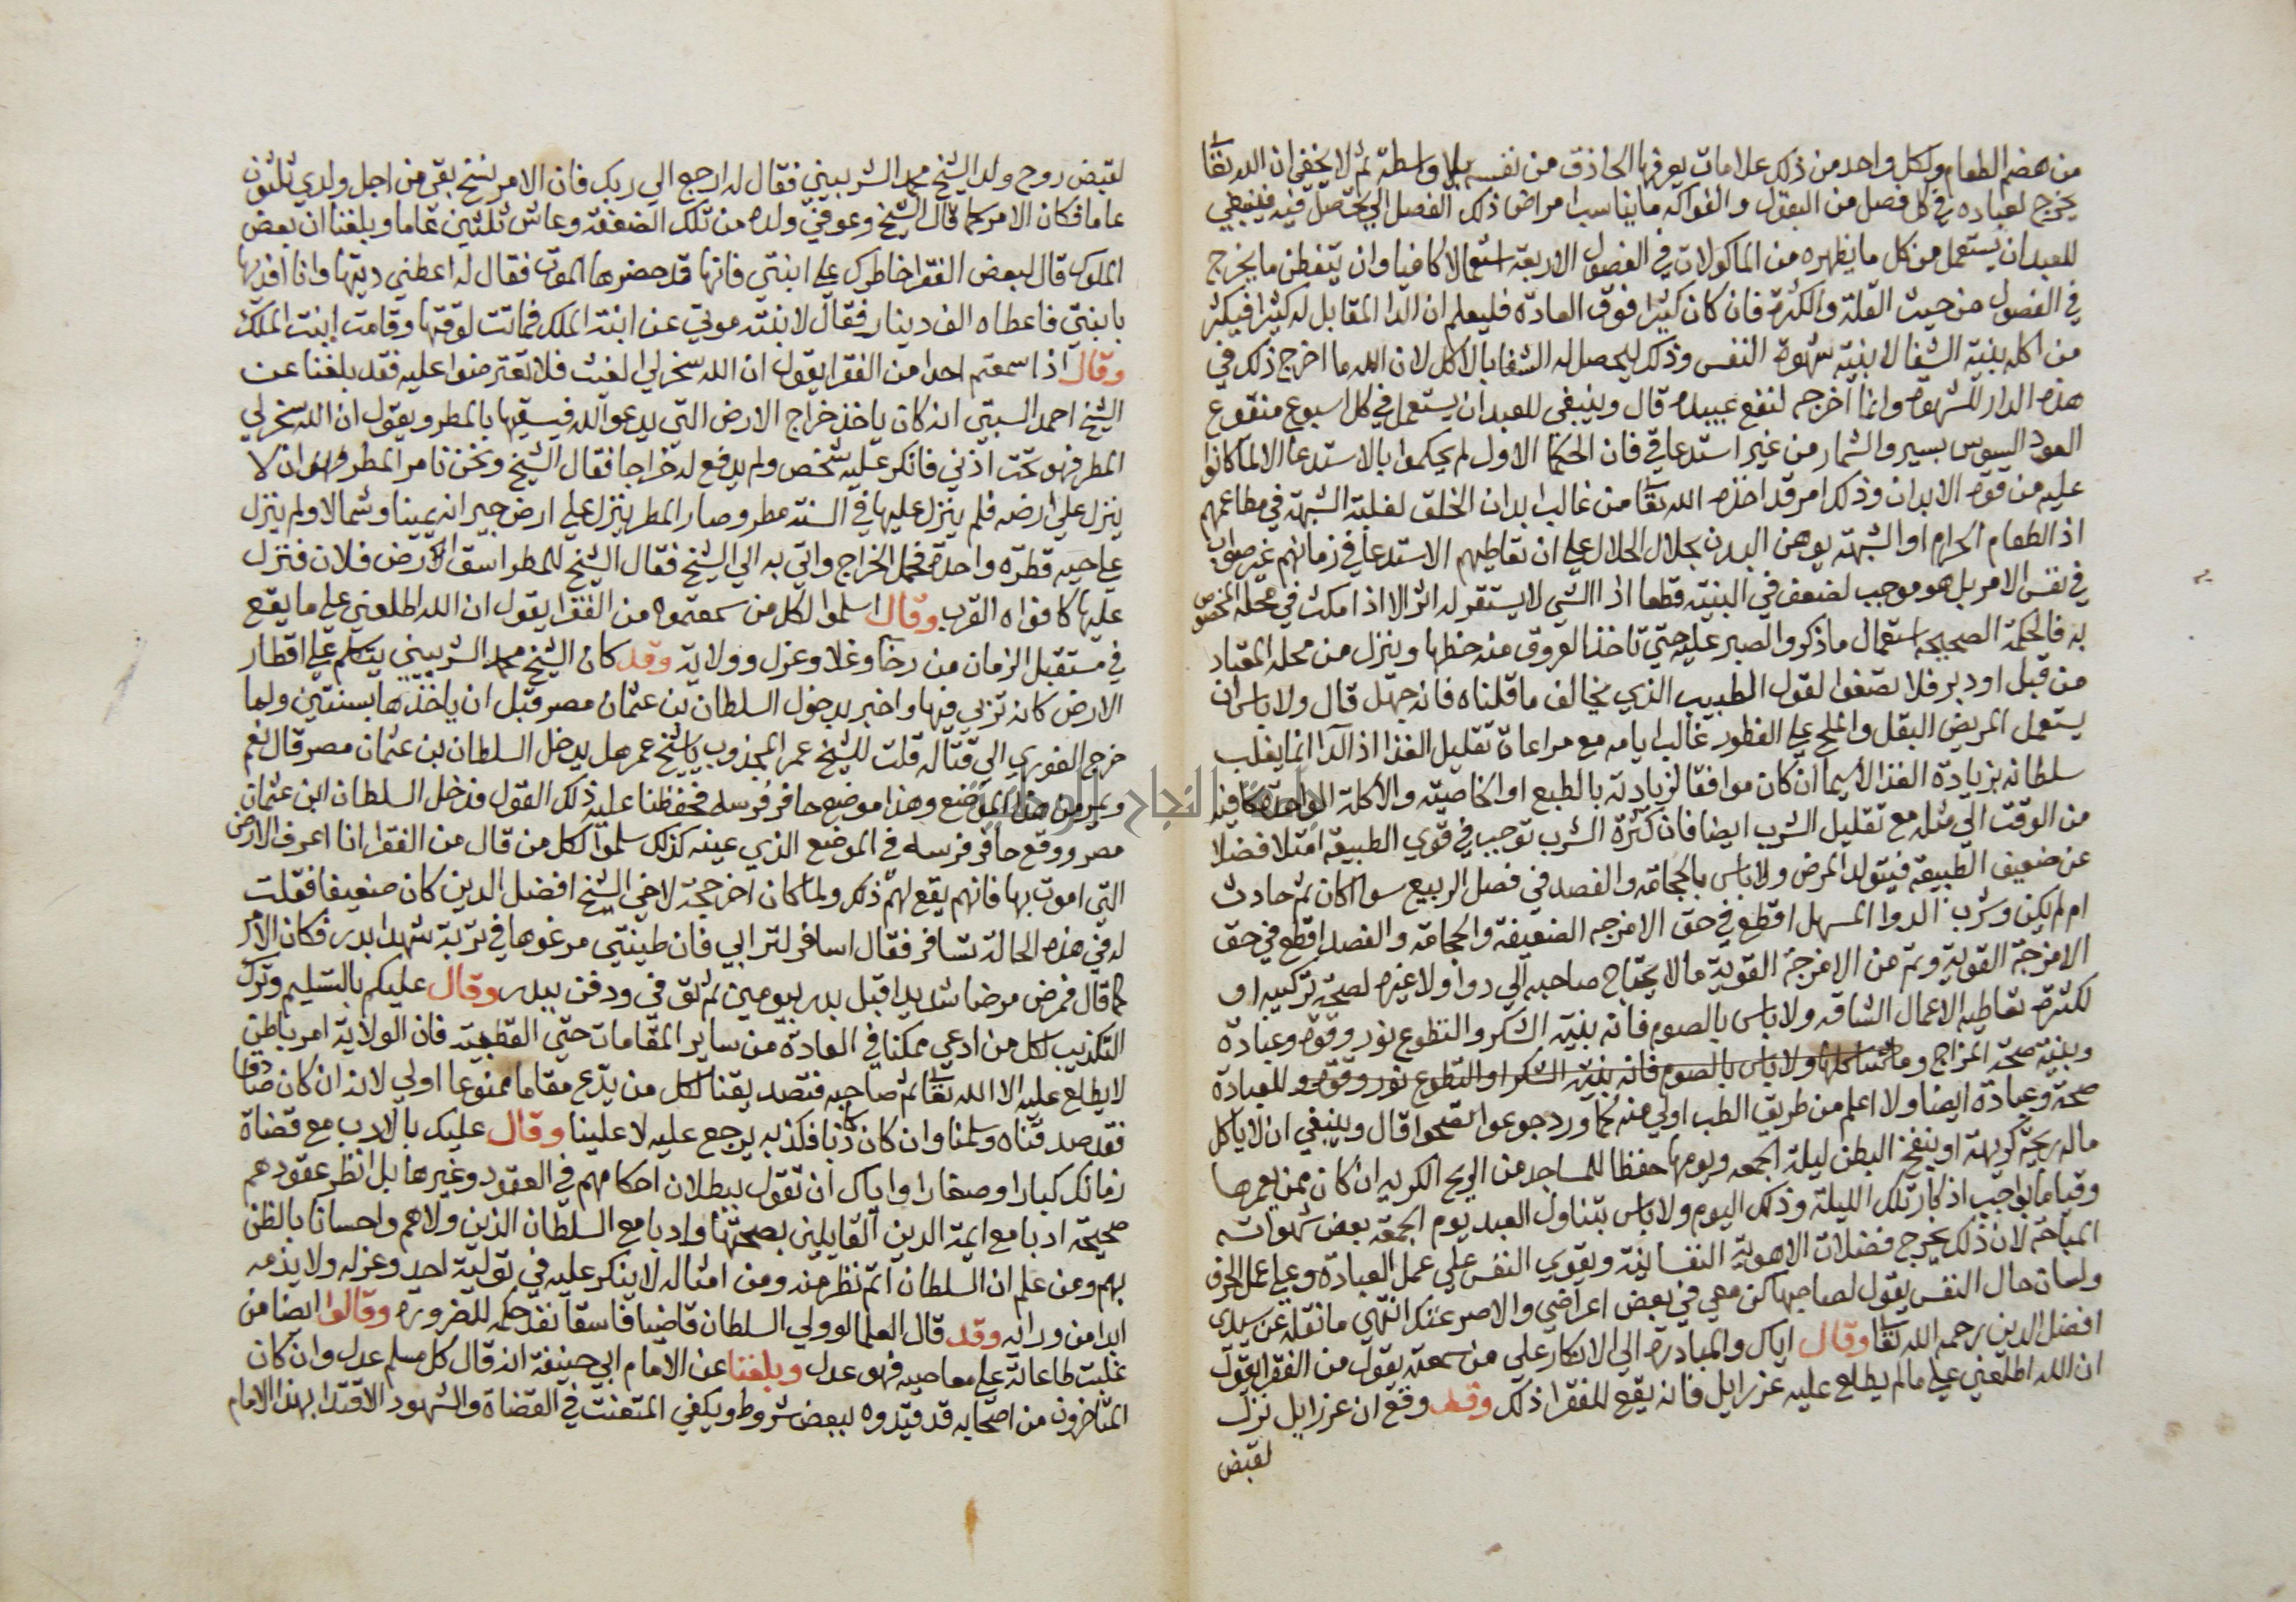 من هضم الطعام ولكل واحد من ذلك علامات يعرفها الحاذق من نفسه بلا واسطة ثم لا يخفى ان الله تعالى
يخرج لعباده في كل فصل من البقول والفواكه ما يناسب امراض ذلك الفصل التي تحصل فيه فينبغي
للعبد ان يستعمل من كل ما يظهره من الماكولات في الفصول الاربعة استعمالا كافيا وان يتفطن ما يخرج
في الفصول من حيث القلة والكثرة فان كان كثيرا فوق العادة فليعلم ان الدا المقابل له كثيرا فيكثر
من اكله بنية الشفا لا بنية شهوة النفس وذلك ليحصل له الشفا بالاكل لان الله ما اخرج ذلك في
هذه الدار للشهوة وانما اخرجه لنفع عبيده قال وينبغي للعبد ان يستعمل في كل اسبوع منقوع
العود السوس بسير والشمار من غير استدعا في فان الحكما الاول لم يحكموا بالاستدعا الا لما كانوا
عليه من قوة الابدان وذلك امر قد اخذه الله تعالى من غالب ابدان الخلق لغلبة الشبهة في مطاعمهم
اذ الطعام الحرام او الشبهة يوهن البدن بخلال الحلال على ان تعاطيهم الاستدعا في زمانهم غير صواب
في نفس الامر بل هو موجب لضعف في البنية قطعا اذ الشي لا يستقر له اثر الا اذ امكث في محله المخصوص
به فالحكمة الصحيحه استعمال ما ذكر والصبر عليه حتى تاخذ العروق منه حظها وينزل من محله المعتاد
من قبل او دبر فلا تصغوا لقول الطبيب الذي يخالف ما قلناه فانه جهل قال ولا باس ان
يستعمل المريض البقل والملح على الفطور غالب ايامه مع مراعاة تقليل الغذا اذ الدا انما يغلب
سلطانه بزيادة الغذا لا سيما ان كان موافقا لزيادته بالطبع او الخاصية والاكلة الواحدة كافية
من الوقت الي مثله مع تقليل الشرب ايضا فان كثرة الشرب توجب في قوي الطبيعة امتلا فضلا
عن ضعيف الطبيعة فيتولد المرض ولا باس بالحجامة والفصد في فصل الربيع سوا كان ثم حادث
ام لم يكن وشرب الدوا المسهل اقطع في حق الامزجه الضعيفة والحجامة والفصد اقطع في حق
الامزجة القوية وثم من الامزجة القوية ما لا يحتاج صاحبه الي دوا ولا غيره لصحة تركيبه او
لكثرة تعاطيه الاعمال الشاقه ولا باس بالصوم فانه بنية الشكر والتطوع نور وقوة وعبادة
وبنية صحة المزاج وما شاكلها ولا باس بالصوم فانه بنية الشكر او التطوع نور وقوة وللعبادة
صحة وعبادة ايضا ولا اعلم من طريق الطب اولي منه كما ورد جوعوا تصحوا قال وينبغي ان لا ياكل
ما له ريحة كريهة او ينفخ البطن ليلة الجمعه ويومها حفظا للمساجد من الريح الكريه ان كان ممن يعمرها
وقياما بواجب اذكار تلك الليلة وذلك اليوم ولا باس بتناول العبد يوم الجمعة بعض شهواته
المباحة لان ذلك يخرج فضلات الاهوية النفسانية ويقوي النفس على عمل العبادة وعلى عمل الحرف
ولسان حال النفس يقول لصاحبها كن معي في بعض اغراضي والا صرعتك انتهى ما نقله عن سيدي
افضل الدين رحمه الله تعالى وقال اياك والمبادرة الي الانكار علي من سمعته يقول من الفقرا يقول
ان الله اطلعني على ما لم يطلع عليه عزرايل فانه يقع للفقرا ذلك وقد وقع ان عزرايل نزل
لقبض
لقبض روح ولد الشيخ محمد الشربيني فقال له ارجع الي ربك فان الامر نسخ بقى من اجل ولدي ثلثون
عاما فكان الامر كما قال الشيخ وعوفي ولده من تلك الضعفة وعاش ثلثين عاما وبلغنا ان بعض
الملوك قال لبعض الفقرا خاطرك على ابنتي فانها قد حضرها الموت فقال له اعطني ديتها وانا افديها
بابنتي فاعطاه الف دينار فقال لابنته موتي عن ابنة الملك فماتت لوقتها وقامت ابنت الملك
وقال اذا سمعتم احدا من الفقرا يقول ان الله سخر لي الغيث فلا تعترضوا عليه فقد بلغنا عن
الشيخ احمد السبتي انه كان ياخذ خراج الارض التي يدعو الله فيسقيها بالمطر ويقول ان الله سخر لي
المطر فهو تحت اذني فانكر عليه شخص ولم يدفع له خراجا فقال الشيخ ونحن نامر المطر ان لا
ينزل على ارضه فلم ينزل عليها في السنة مطر وصار المطر ينزل على ارض جيرانه يمينا وشمالا ولم ينزل
على حيه قطرة واحدة فحمل الخراج واتي به الي الشيخ فقال الشيخ للمطر اسق الارض فلان فنزل
عليها كافواه القرب وقال اسلموا لكل من سمعتموه من الفقرا يقول ان الله اطلعني على ما يقع
في مستقبل الزمان من رخا وغلا وعزل وولاية وقد كان الشيخ محمد الشربيني يتكلم على اقطار
الارض كانه تربي فيها واخبر بدخول السلطان بن عثمان مصر قبل ان ياخذها بسنتين ولما
خرج الغوري الي قتاله قلت للشيخ عمر المجذوب يا شيخ عمر هل يدخل السلطان بن عثمان مصر قال نعم
ويمر من هذا الموضع وهذا موضع حافر فرسه فحفظنا عليه ذلك القول فدخل السلطان ابن عثمان
مصر ووقع حافر فرسه في الموضع الذي عينه كذلك سلموا لكل من قال من الفقرا انا اعرف الارض
التي اموت بها فانهم يقع لهم ذلك ولما كان اخر حجة لاخي الشيخ افضل الدين كان ضعيفا فقلت
له في هذه الحالة تسافر فقال اسافر لترابي فان طينتي مرغوها في تربة شهدا بدر فكان الامر
كما قال فمرض مرضا شديدا قبل بدر بيومين ثم توفي ودفن ببدر وقال عليكم بالتسليم وترك
التكذيب لكل من ادعي ممكنا في العادة من ساير المقامات حتى القطبية فان الولاية امر باطن
لا يطلع عليه الا الله تعالى ثم صاحبه فتصديقنا لكل من يدع مقاما ممنوعا اولي لانه ان كان صادقا
فقد صدقناه وسلمنا وان كان كاذبا فكذبه يرجع عليه لا علينا وقال عليك بالادب مع قضاة
زمانك كبارا وصغارا واياك ان تقول ببطلان احكامهم في العقود وغيرها بل انظر عقودهم
صحيحة ادبا مع ايمة الدين القايلين بصحتها وادبا مع السلطان الذين ولاهم واحسانا بالظن
بهم ومن علم ان السلطان اتم نظر منه ومن امثاله لا ينكر عليه في تولية احد وعزله ولا يذمه
ابدا من ورائه وقد قال العلما لو ولي السلطان قاضيا فاسقا نفذ حكمه للضرورة وقالوا ايضا من
غلبت طاعاته على معاصيه فهو عدل وبلغنا عن الامام ابي حنيفة انه قال كل مسلم عدل وان كان
المتاخرون من اصحابه قد قيدوه ببعض شروط ويكفي المتعنت في القضاة والشهود الاقتدا بهذا الامام